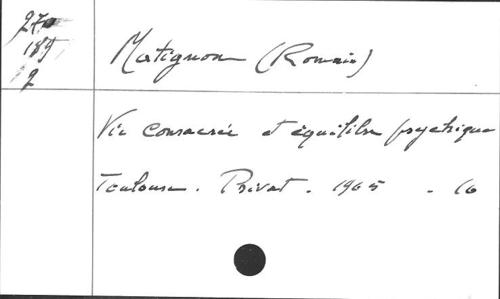 27
189
2
Matignon (Romain)
Vie consacrée et équilibre psychique
Toulouse. Privat. 1965 . 16